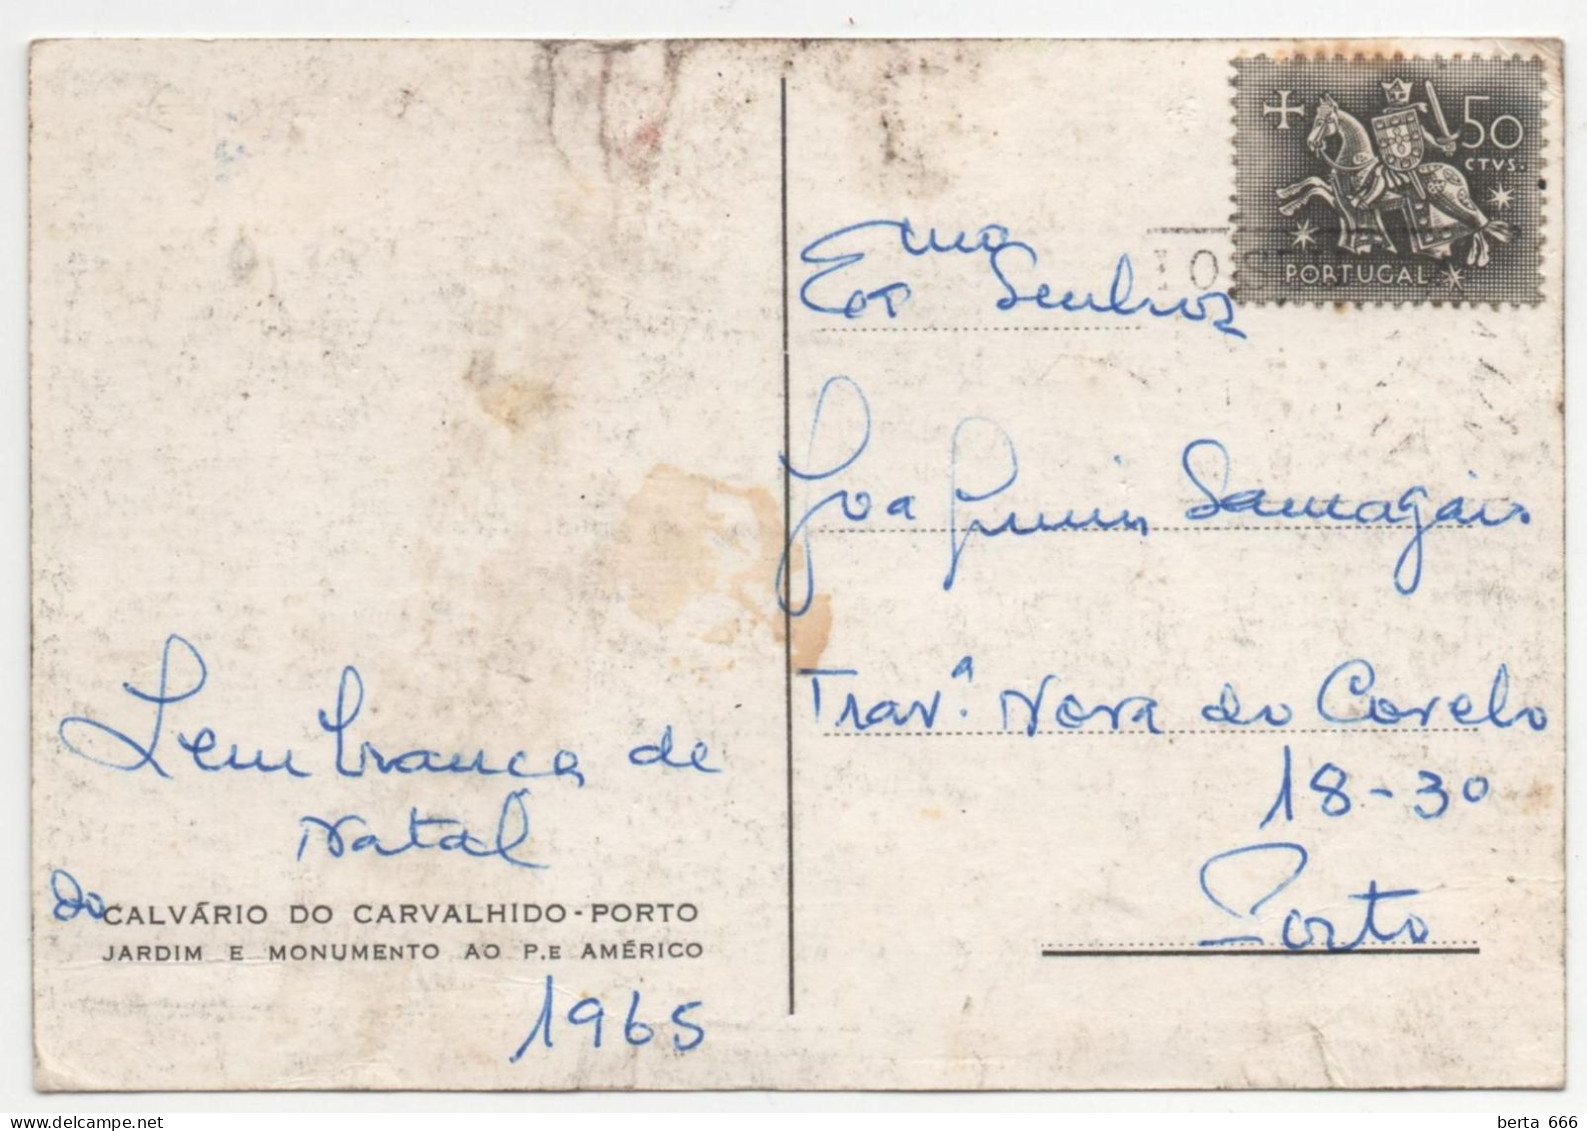 Lembrança de
Natal
do CALVÁRIO DO CARVALHIDO - PORTO
JARDIM E MONUMENTO AO P.E AMÉRICO
1965
50
CTVS.
PORTUGAL
Exmo
Senhor
Joaquim Samagaio
Trav.ª Nova do Covelo
18-30
Porto
berta 666